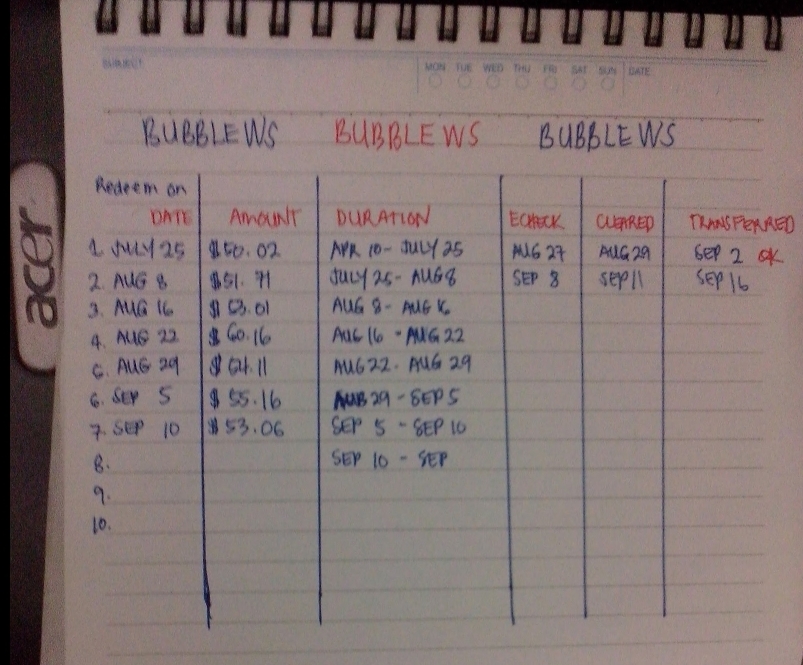 SUBJECT
MON TUE WED THU FRI SAT SUN DATE
BUBBLEWS BUBBLEWS BUBBLEWS
Redeem on
DATE AMOUNT DURATION ECHECK CLEARED TRANSFERRED
1. JULY 25 $50.02 APR 10 - JULY 25 AUG 27 AUG 29 SEP 2 OK
2. AUG 8 $51.71 JULY 25 - AUG 8 SEP 8 SEP 11 SEP 16
3. AUG 16 $53.01 AUG 8 - AUG 16
4. AUG 22 $60.16 AUG 16 - AUG 22
5. AUG 29 $ AUG 22 - AUG 29
6. SEP 5 $55.16 AUG 29 - SEP 5
7. SEP 10 $53.06 SEP 5 - SEP 10
8. SEP 10 - SEP
9.
10.
acer